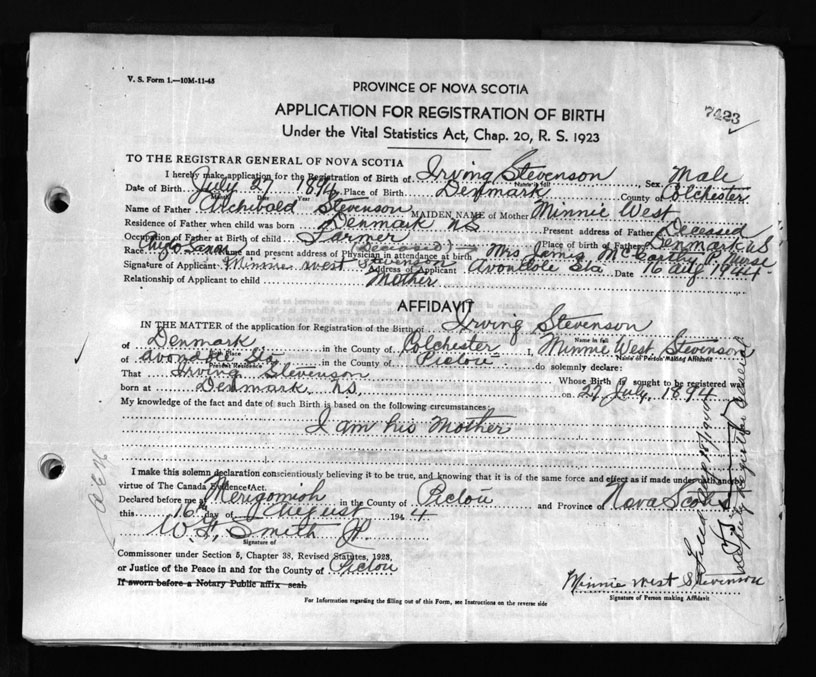 V. S. Form 1.—10M-11-43
PROVINCE OF NOVA SCOTIA
APPLICATION FOR REGISTRATION OF BIRTH
7423
Under the Vital Statistics Act, Chap. 20, R. S. 1923
TO THE REGISTRAR GENERAL OF NOVA SCOTIA
I hereby make application for the Registration of Birth of Irving Stevenson Sex Male
Name in full
Date of Birth July 27 1894 Place of Birth Denmark County of Colchester
Month Date Year
Name of Father Archibald Stevenson MAIDEN NAME of Mother Minnie West
Residence of Father when child was born Denmark N.S. Present address of Father Deceased
Occupation of Father at Birth of child Farmer Place of birth of Father Denmark N.S.
Race Name and present address of Physician in attendance at birth (Deceased) Mrs James McCarthy P. Nurse
Signature of Applicant Minnie West Stevenson Address of Applicant Avondale Sta Date 16 Aug 1944
Relationship of Applicant to child Mother
AFFIDAVIT
IN THE MATTER of the application for Registration of the Birth of Irving Stevenson
Name in full
of Denmark in the County of Colchester I, Minnie West Stevenson
Place Name of Person Making Affidavit
of Avondale Sta in the County of Pictou do solemnly declare:
Present Residence
That Irving Stevenson Whose Birth is sought to be registered was
born at Denmark N.S. on 27 July 1894
My knowledge of the fact and date of such Birth is based on the following circumstances:
I am his Mother
I make this solemn declaration conscientiously believing it to be true, and knowing that it is of the same force and effect as if made under oath and by
virtue of The Canada Evidence Act.
Declared before me at Merigomish in the County of Pictou and Province of Nova Scotia
this 16th day of August 1944
W. H. Smith J.P.
Signature of
Commissioner under Section 5, Chapter 38, Revised Statutes, 1923,
or Justice of the Peace in and for the County of Pictou
If sworn before a Notary Public affix seal.
Minnie West Stevenson
Signature of Person making Affidavit
For Information regarding the filling out of this Form, see Instructions on the reverse side